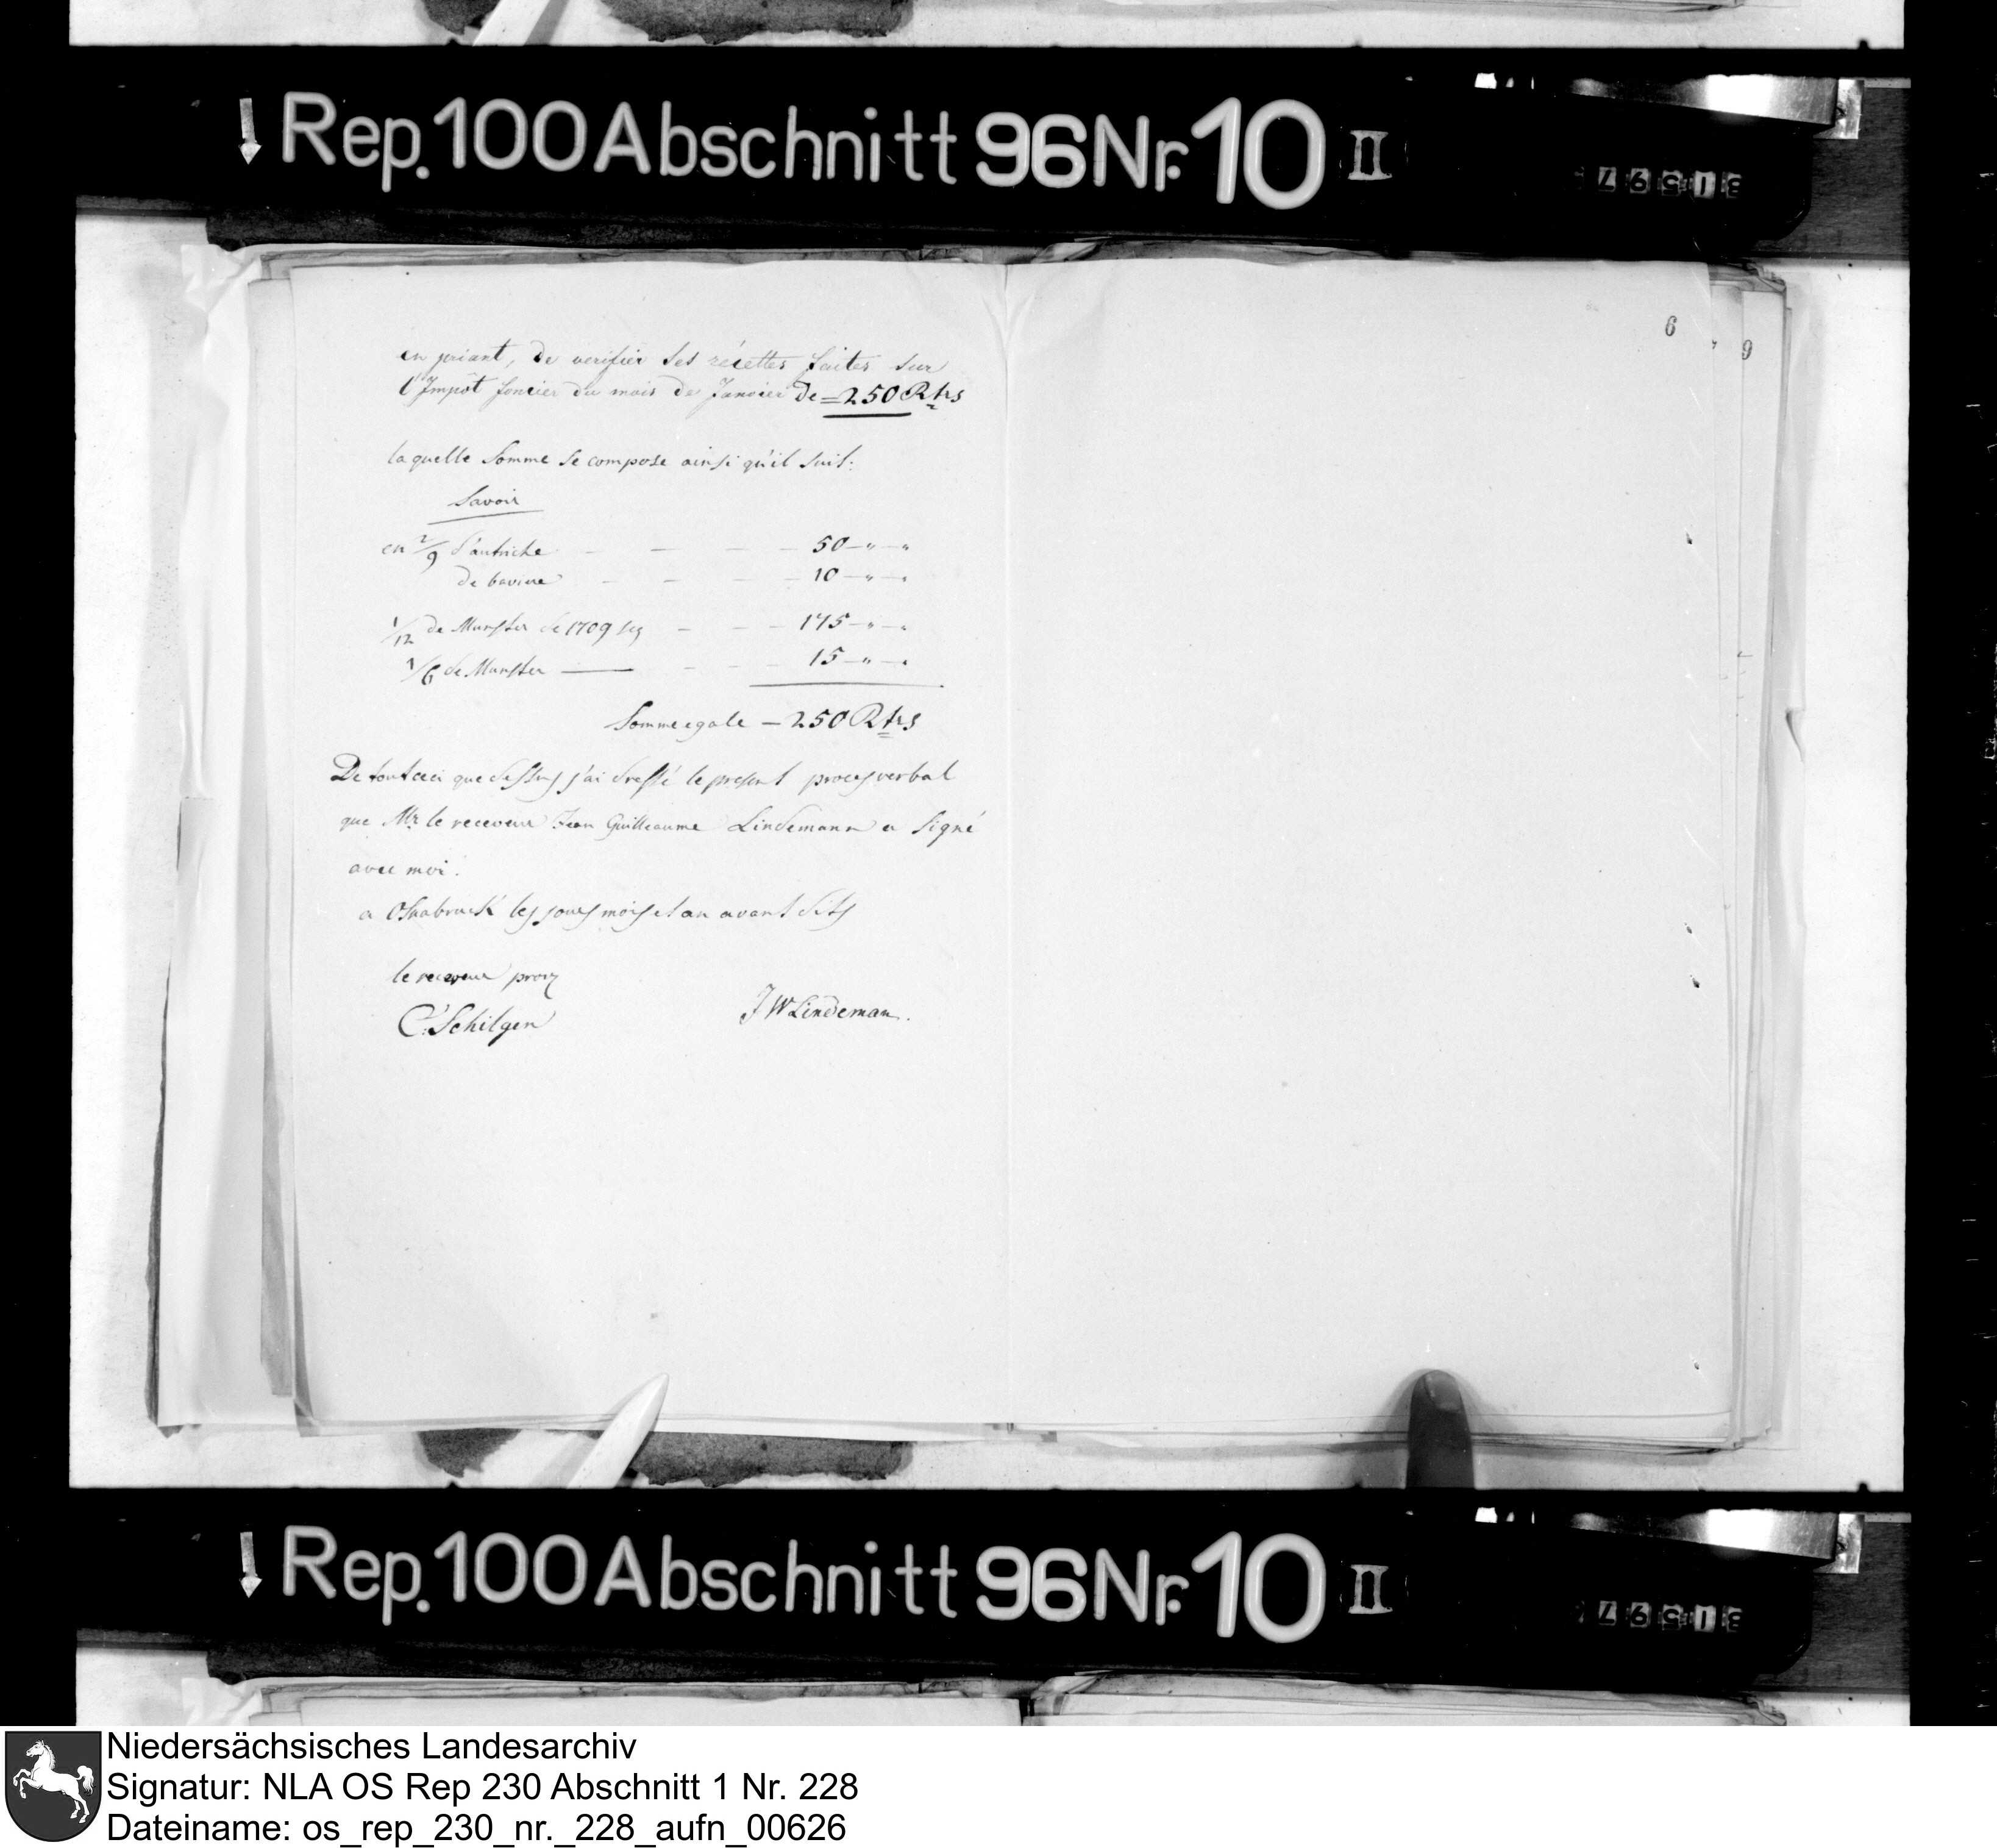 Rep. 100 Abschnitt 96 Nr. 10 II
6
9
en priant, de verifier ses récettes faites sur
l'Impôt foncier du mois de Janvier de = 250 Rtrs
laquelle Somme se compose ainsi qu'il suit:
Savoir
en 2/9 d'autriche — — — — 50 — " — "
de baviere — — — — 10 — " — "
1/12 de Munster de 1709 — — — 175 — " — "
1/6 de Munster — — — — 15 — " — "
Somme egale — 250 Rtrs
De tout ceci que dessus j'ai dressé le present procesverbal
que Mr. le receveur Jean Guilleaume Lindemann a signé
avec moi.
a Osnabruck les jours mois et an avant dits
le receveur
C. Schilgen
J W Lindeman.
Rep. 100 Abschnitt 96 Nr. 10 II
Niedersächsisches Landesarchiv
Signatur: NLA OS Rep 230 Abschnitt 1 Nr. 228
Dateiname: os_rep_230_nr._228_aufn_00626